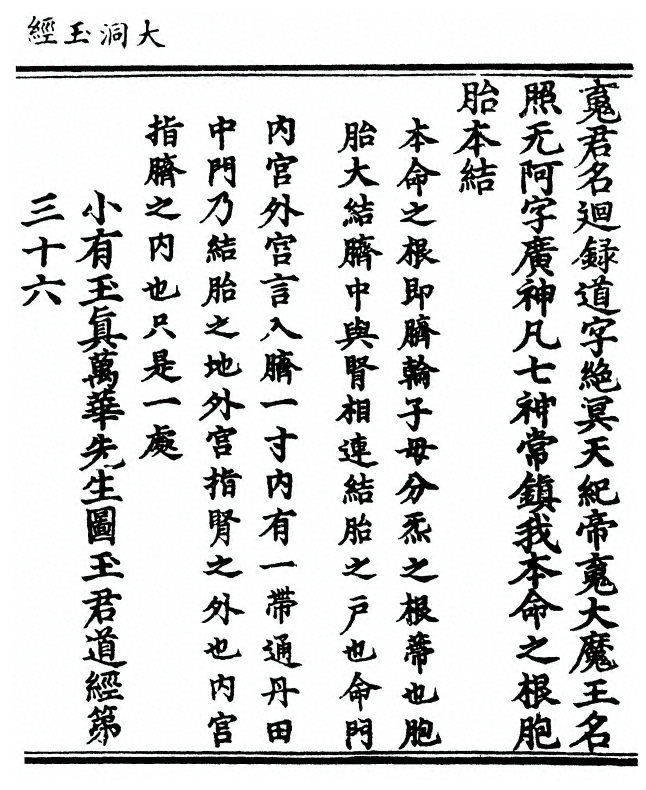 大洞玉經
䰟君名迴録道字絶冥天紀帝䰟大魔王名
照无阿字廣神凡七神常鎮我本命之根胞
胎本結
本命之根即臍輪子母分炁之根蔕也胞
胎大結臍中與腎相連結胎之戸也命門
内宫外宫言入臍一寸内有一帶通丹田
中門乃結胎之地外宫指腎之外也内宫
指臍之内也只是一處
小有玉眞萬華先生圖玉君道經第
三十六